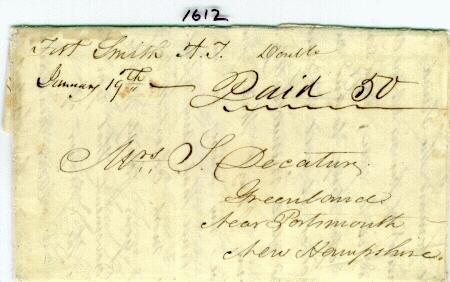 1612
Fort Smith A.T. Double
January 19th Paid 50
Mrs. S. Decatur,
Greenland
Near Portsmouth
New Hampshire.